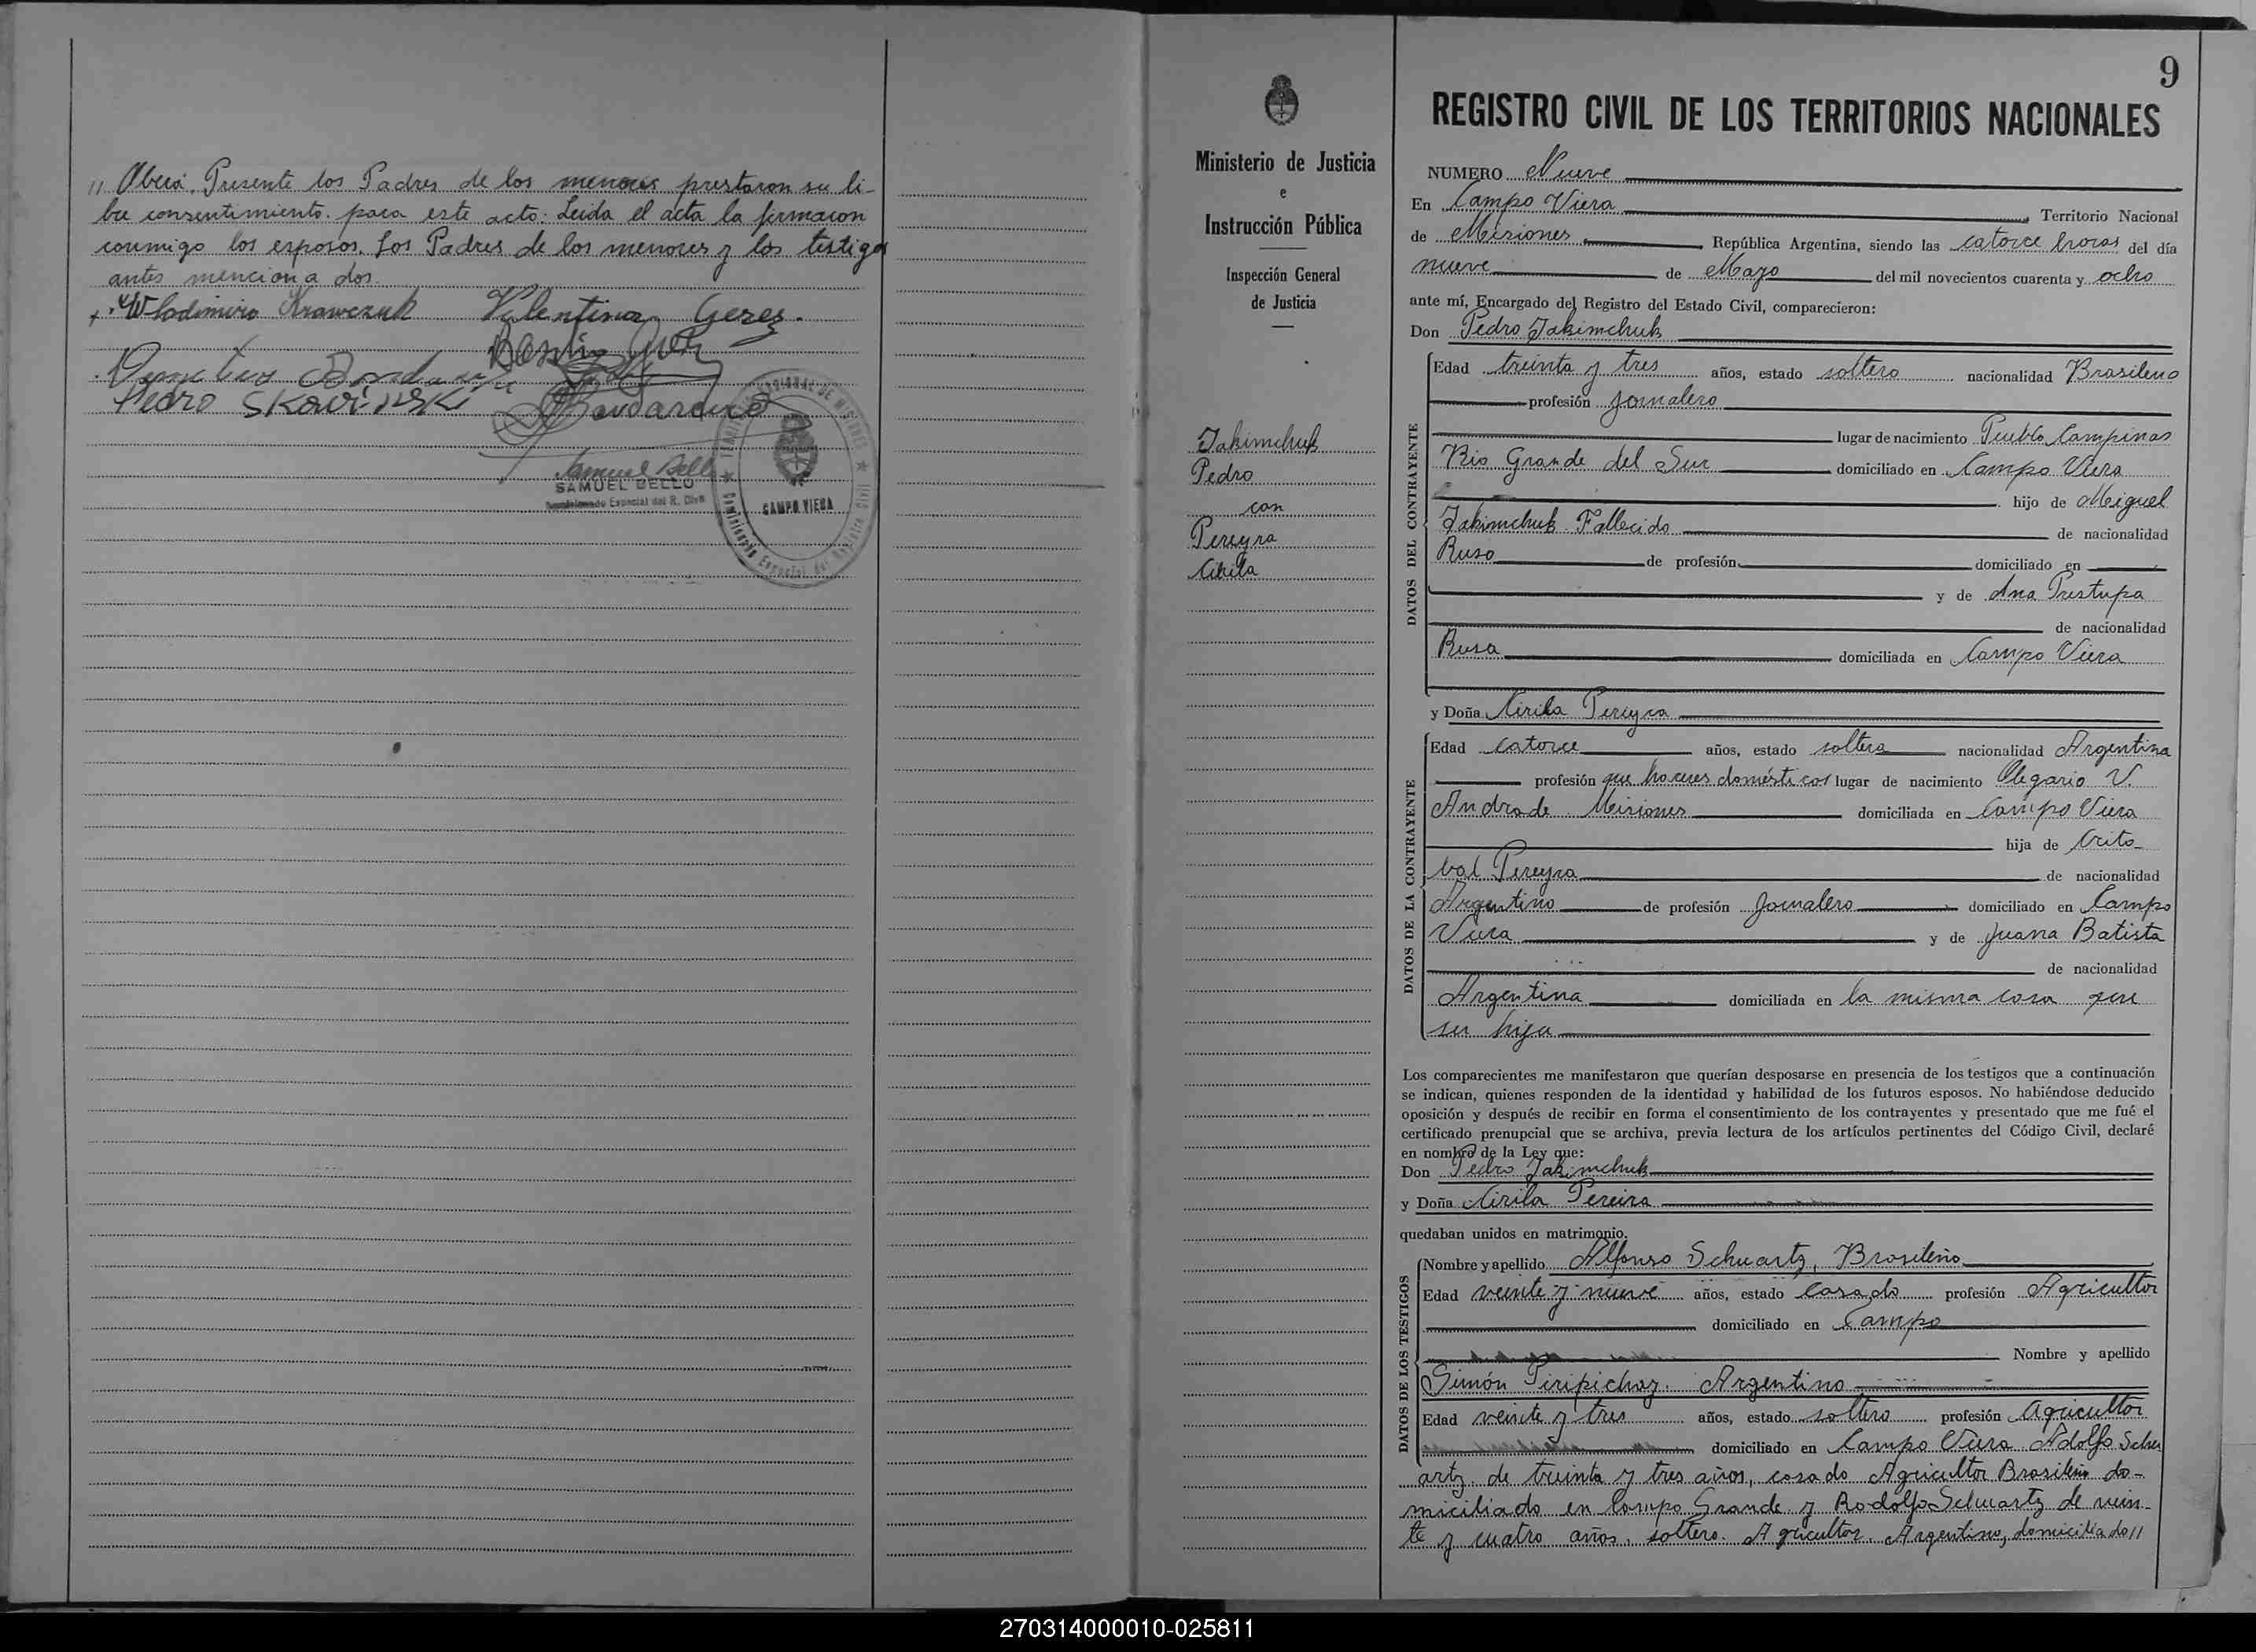 // Oberá. Presente los Padres de los menores prestaron su li-
bre consentimiento. para este acto: Leida el acta la firmaron
conmigo los esposos. Los Padres de los menores y los testigos
antes menciona dos.
Wladimiro Krawczuk Valentina Gerez.
Pedro Skowinski
Samuel Bello
SAMUEL BELLO
CAMPO VIERA
Ministerio de Justicia
e
Instrucción Pública
Inspección General
de Justicia
Jakimchuk
Pedro
con
Pereyra
Cirila
9
REGISTRO CIVIL DE LOS TERRITORIOS NACIONALES
NUMERO Nueve
En Campo Viera Territorio Nacional
de Misiones República Argentina, siendo las catorce horas del día
nueve de Mayo del mil novecientos cuarenta y ocho
ante mí, Encargado del Registro del Estado Civil, comparecieron:
Don Pedro Jakimchuk
DATOS DEL CONTRAYENTE
Edad treinta y tres años, estado soltero nacionalidad Brasileno
profesión Jornalero
lugar de nacimiento Pueblo Campinas
Rio Grande del Sur domiciliado en Campo Viera
hijo de Miguel
Jakimchuk Fallecido de nacionalidad
Ruso de profesión domiciliado en
y de Ana Prestupa
de nacionalidad
Rusa domiciliada en Campo Viera
y Doña Cirila Pereyra
DATOS DE LA CONTRAYENTE
Edad catorce años, estado soltera nacionalidad Argentina
profesión que haceres domésticos lugar de nacimiento Olegario V.
Andrade Misiones domiciliada en Campo Viera
hija de Crito-
bal Pereyra de nacionalidad
Argentino de profesión Jornalero domiciliado en Campo
Viera y de Juana Batista
de nacionalidad
Argentina domiciliada en la misma casa que
su hija
Los comparecientes me manifestaron que querían desposarse en presencia de los testigos que a continuación
se indican, quienes responden de la identidad y habilidad de los futuros esposos. No habiéndose deducido
oposición y después de recibir en forma el consentimiento de los contrayentes y presentado que me fué el
certificado prenupcial que se archiva, previa lectura de los artículos pertinentes del Código Civil, declaré
en nombre de la Ley que:
Don Pedro Jakimchuk
y Doña Cirila Pereira
quedaban unidos en matrimonio.
DATOS DE LOS TESTIGOS
Nombre y apellido Alfonso Schuartz, Brasileño
Edad veinte y nueve años, estado casado profesión Agricultor
domiciliado en Campo
Nombre y apellido
Simón Piripichoz. Argentino
Edad veinte y tres años, estado soltero profesión Agricultor
domiciliado en Campo Viera Adolfo Schu
artz. de treinta y tres años, casado Agricultor Brasileño do-
miciliado en Campo Grande y Rodolfo Schuartz de vein-
te y cuatro años. soltero. Agricultor. Argentino, domiciliado //
270314000010-025811